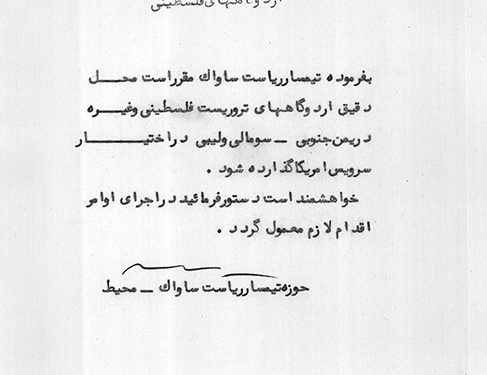 اردوگاههای فلسطینی
بفرموده تیمسار ریاست ساواك مقرر است محل
دقیق اردوگاههای تروریست فلسطینی وغیره
در یمن جنوبی ــ سومالی ولیبی در اختیار
سرویس امریکا گذارده شود .
خواهشمند است دستور فرمائید در اجرای اوامر
اقدام لازم معمول گردد .
حوزه تیمسار ریاست ساواك ــ محیط